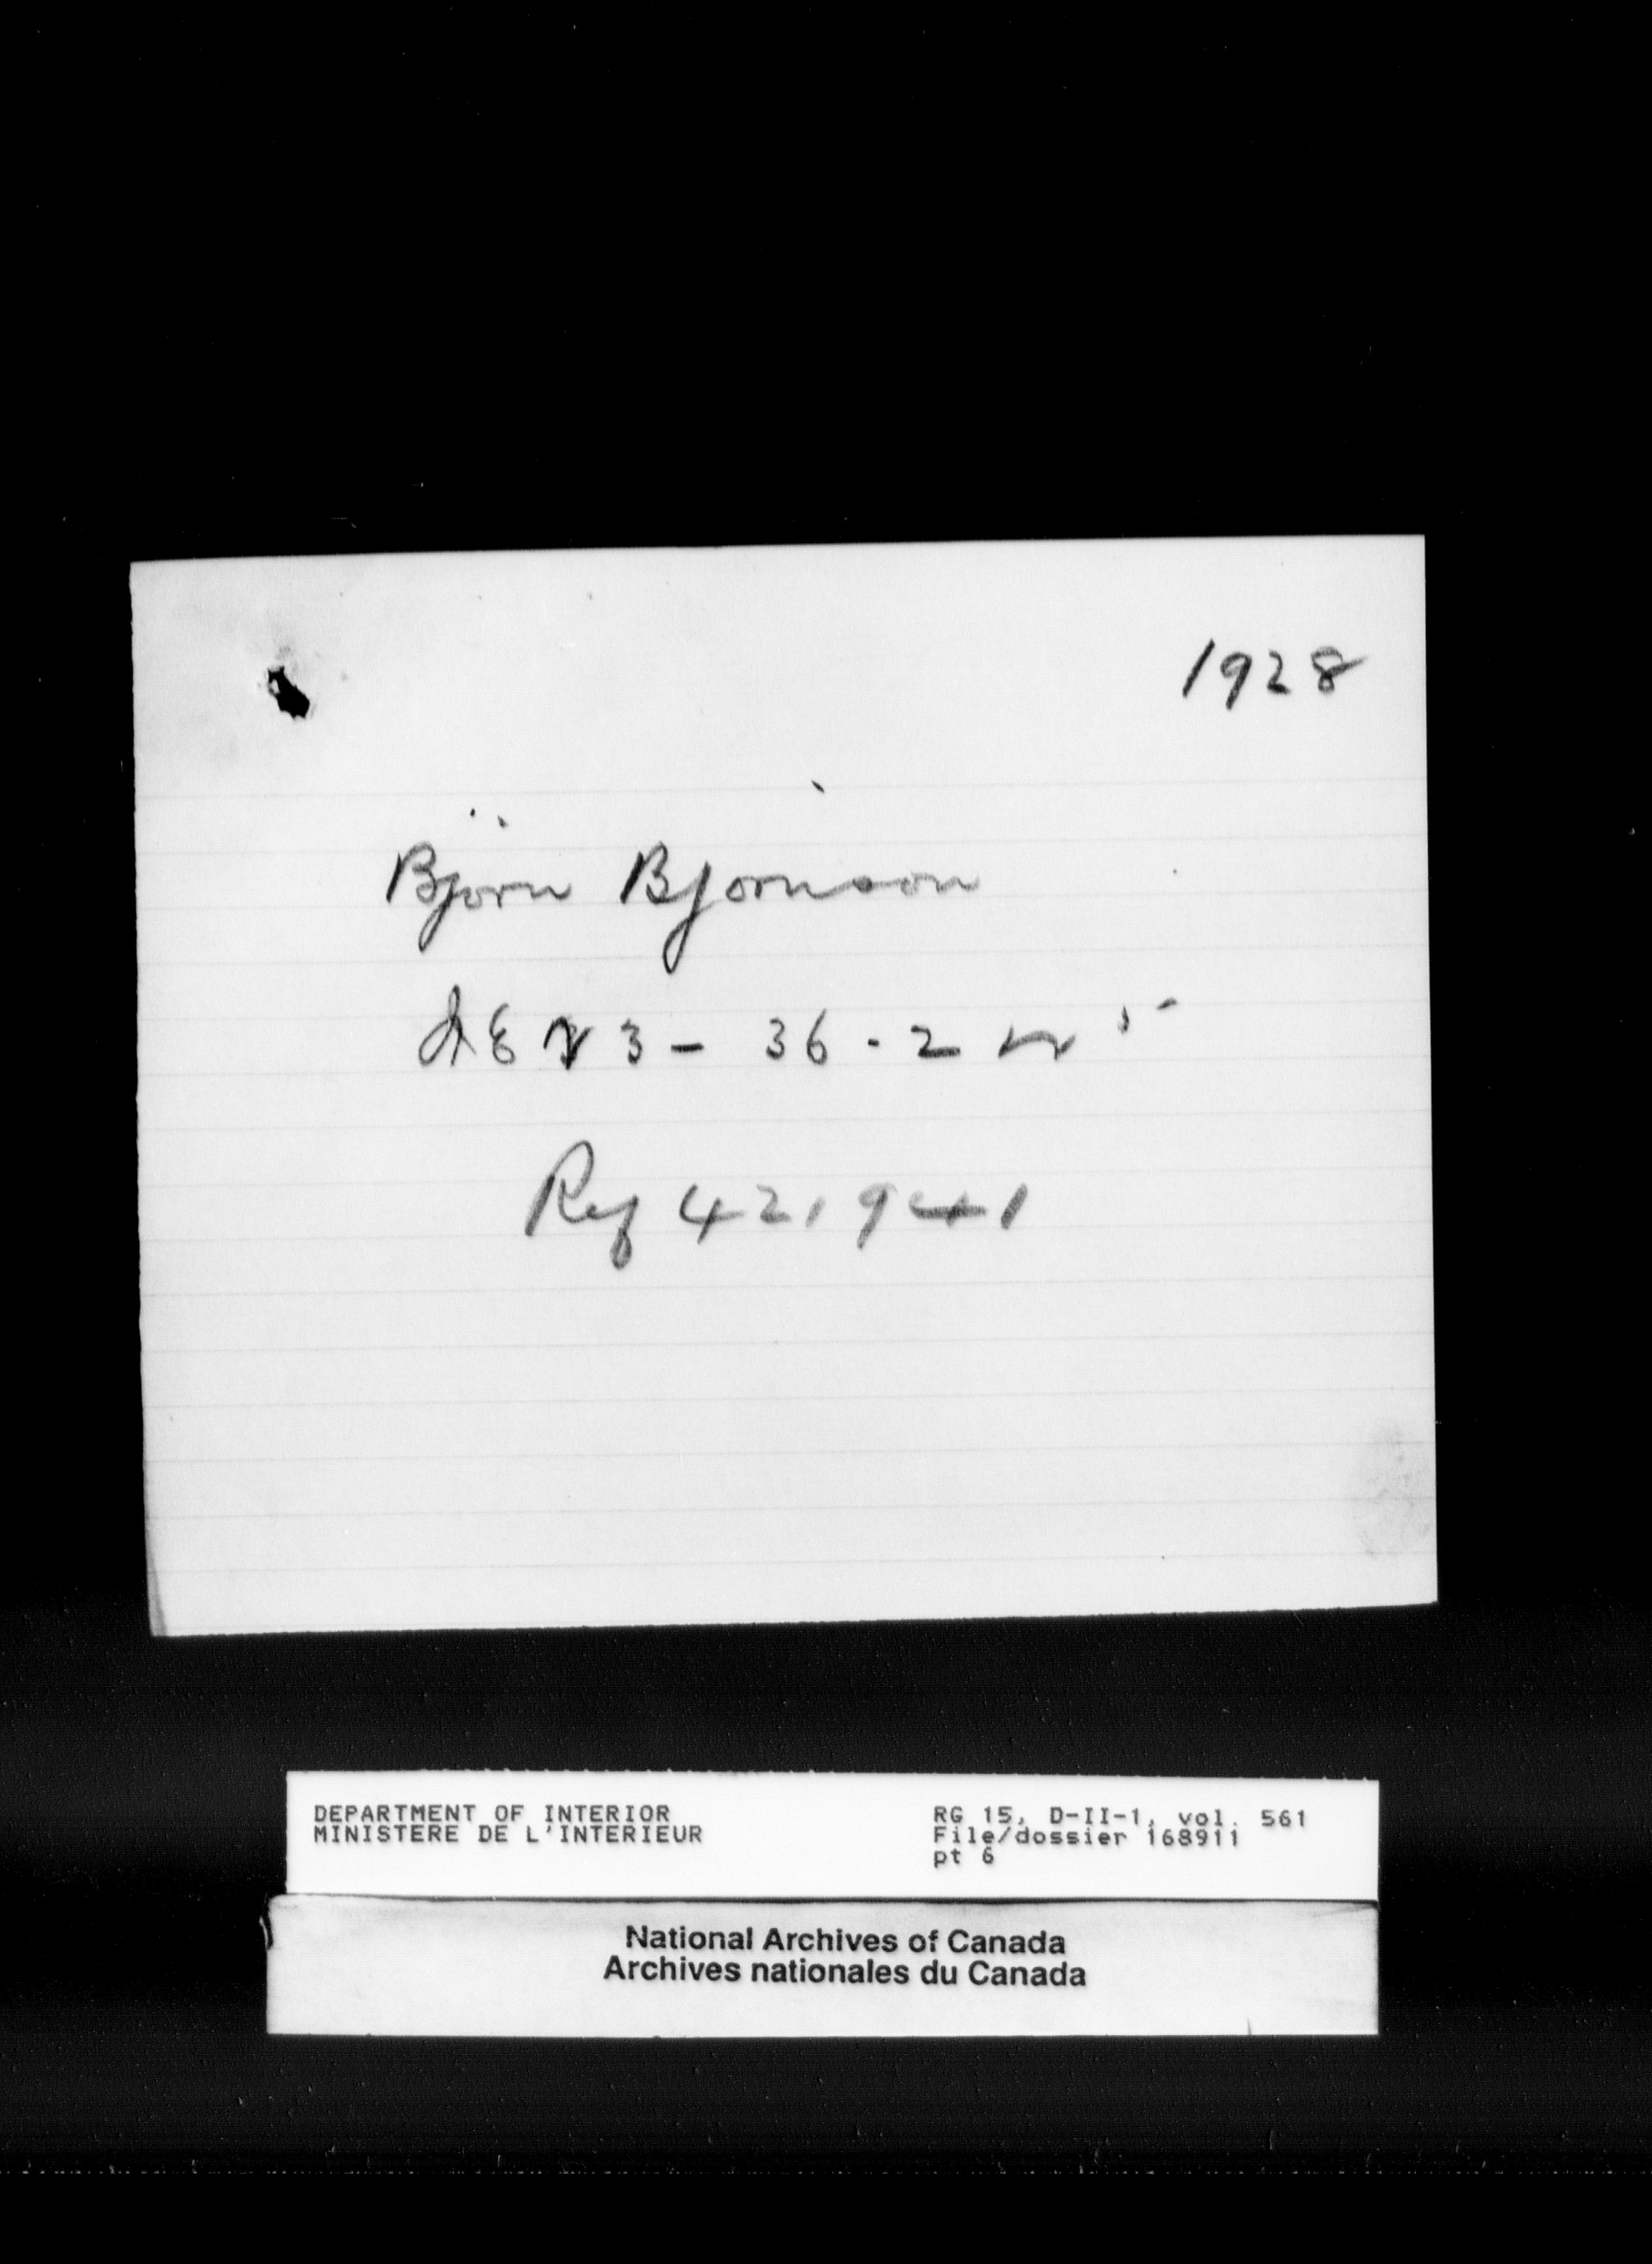 1928
Bjorn Bjornson
3 - 36 - 2 W
Ref 421941
DEPARTMENT OF INTERIOR RG 15, D-II-1, vol. 561
MINISTERE DE L'INTERIEUR File/dossier 168911
pt 6
National Archives of Canada
Archives nationales du Canada